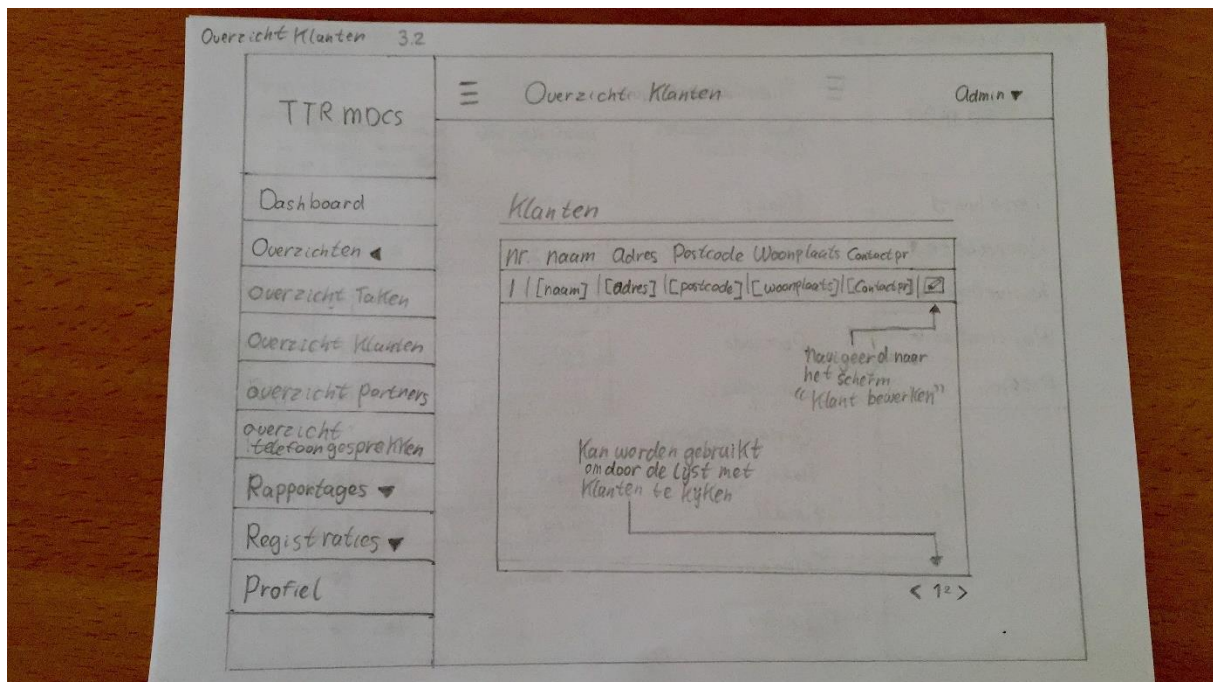 Overzicht Klanten 3.2
TTR mDcs
Overzicht Klanten
Admin
Dashboard
Overzichten
Overzicht Taken
Overzicht Klanten
overzicht partners
overzicht
telefoongesprekken
Rapportages
Registraties
Profiel
Klanten
nr. naam Adres Postcode Woonplaats Contactpr
1 | [naam] | [adres] | [postcode] | [woonplaats] | [Contactpr] |
navigeerd naar
het scherm
"Klant bewerken"
Kan worden gebruikt
om door de lijst met
Klanten te kijken
< 1 2 >